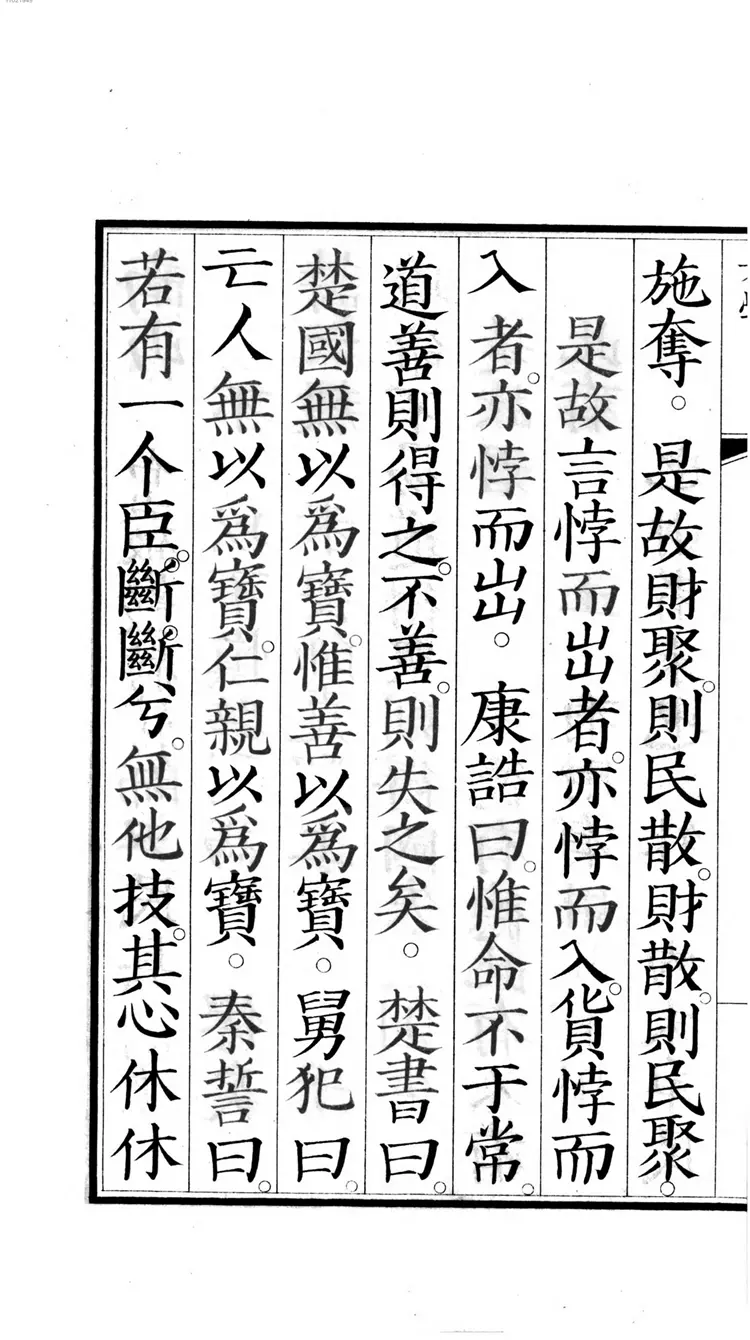 施奪。是故財聚。則民散。財散。則民聚。
是故言悖而出者。亦悖而入。貨悖而
入者。亦悖而出。康誥曰。惟命不于常。
道善則得之。不善。則失之矣。楚書曰。
楚國無以爲寶。惟善以爲寶。舅犯曰。
亡人無以爲寶。仁親以爲寶。秦誓曰。
若有一个臣。斷斷兮。無他技。其心休休